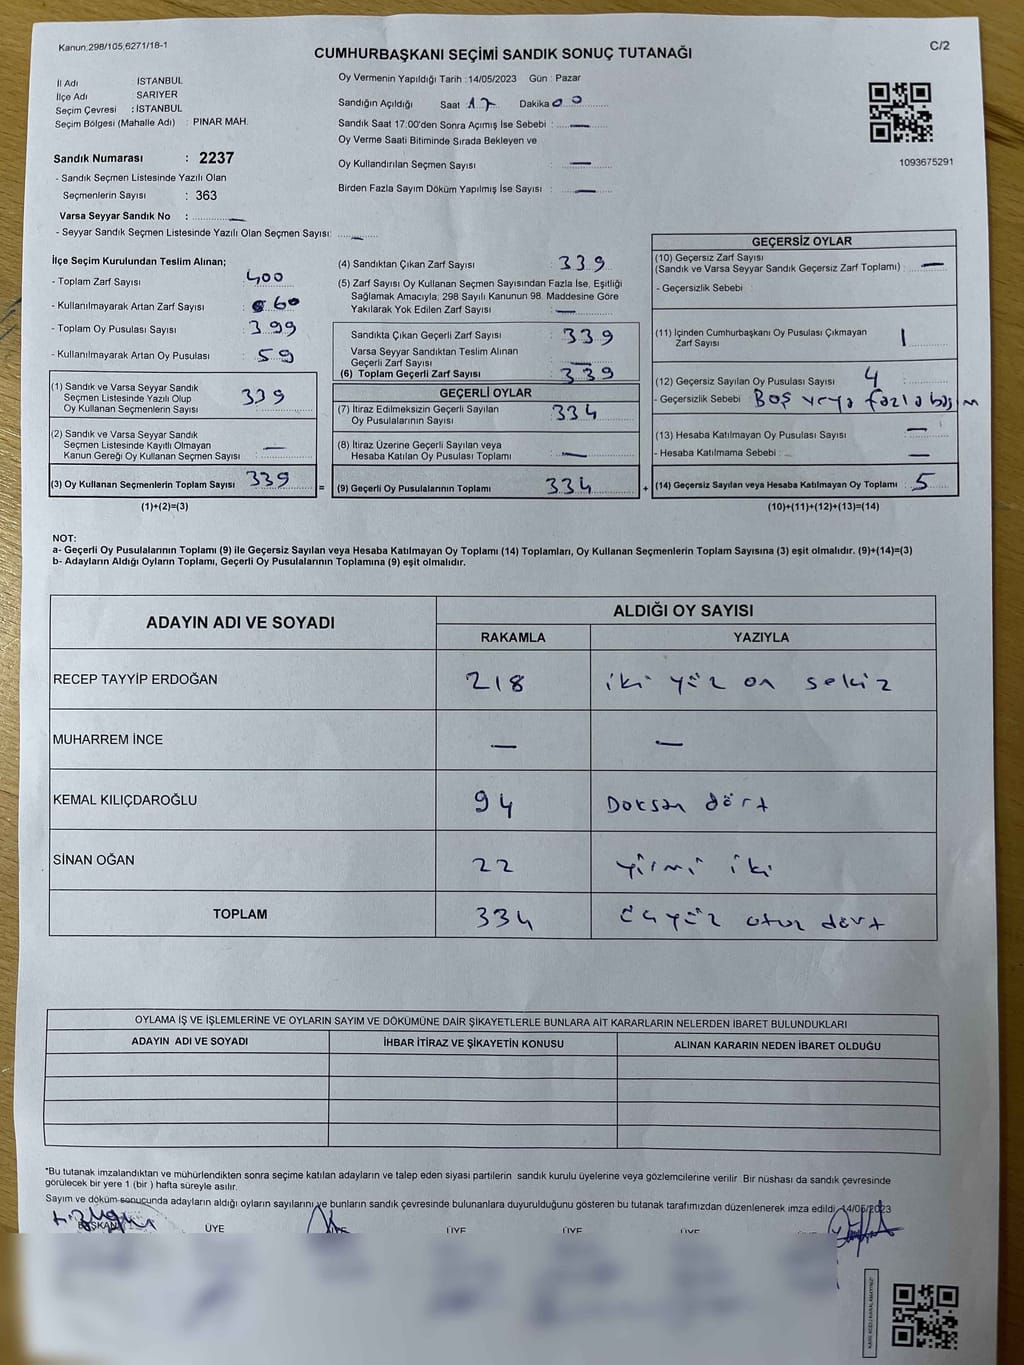 Kanun,298/105,6271/18-1
C/2
CUMHURBAŞKANI SEÇİMİ SANDIK SONUÇ TUTANAĞI
İl Adı : İSTANBUL
İlçe Adı : SARIYER
Seçim Çevresi : İSTANBUL
Seçim Bölgesi (Mahalle Adı) : PINAR MAH.
Sandık Numarası : 2237
- Sandık Seçmen Listesinde Yazılı Olan
Seçmenlerin Sayısı : 363
Varsa Seyyar Sandık No : —
- Seyyar Sandık Seçmen Listesinde Yazılı Olan Seçmen Sayısı: —
Oy Vermenin Yapıldığı Tarih : 14/05/2023 Gün : Pazar
Sandığın Açıldığı Saat 17 Dakika 00
Sandık Saat 17:00'den Sonra Açımış İse Sebebi : —
Oy Verme Saati Bitiminde Sırada Bekleyen ve
Oy Kullandırılan Seçmen Sayısı : —
Birden Fazla Sayım Döküm Yapılmış İse Sayısı : —
1093675291
İlçe Seçim Kurulundan Teslim Alınan;
- Toplam Zarf Sayısı : 400
- Kullanılmayarak Artan Zarf Sayısı : 60
- Toplam Oy Pusulası Sayısı : 399
- Kullanılmayarak Artan Oy Pusulası : 59
(1) Sandık ve Varsa Seyyar Sandık
Seçmen Listesinde Yazılı Olup
Oy Kullanan Seçmenlerin Sayısı : 339
(2) Sandık ve Varsa Seyyar Sandık
Seçmen Listesinde Kayıtlı Olmayan
Kanun Gereği Oy Kullanan Seçmen Sayısı : —
(3) Oy Kullanan Seçmenlerin Toplam Sayısı : 339
(1)+(2)=(3)
=
(4) Sandıktan Çıkan Zarf Sayısı : 339
(5) Zarf Sayısı Oy Kullanan Seçmen Sayısından Fazla İse, Eşitliği
Sağlamak Amacıyla; 298 Sayılı Kanunun 98. Maddesine Göre
Yakılarak Yok Edilen Zarf Sayısı : —
Sandıkta Çıkan Geçerli Zarf Sayısı : 339
Varsa Seyyar Sandıktan Teslim Alınan
Geçerli Zarf Sayısı : —
(6) Toplam Geçerli Zarf Sayısı : 339
GEÇERLİ OYLAR
(7) İtiraz Edilmeksizin Geçerli Sayılan
Oy Pusulalarının Sayısı : 334
(8) İtiraz Üzerine Geçerli Sayılan veya
Hesaba Katılan Oy Pusulası Toplamı : —
(9) Geçerli Oy Pusulalarının Toplamı 334
+
GEÇERSİZ OYLAR
(10) Geçersiz Zarf Sayısı
(Sandık ve Varsa Seyyar Sandık Geçersiz Zarf Toplamı) : —
- Geçersizlik Sebebi :
(11) İçinden Cumhurbaşkanı Oy Pusulası Çıkmayan
Zarf Sayısı : 1
(12) Geçersiz Sayılan Oy Pusulası Sayısı : 4
- Geçersizlik Sebebi : Boş veya fazla basım
(13) Hesaba Katılmayan Oy Pusulası Sayısı : —
- Hesaba Katılmama Sebebi : —
(14) Geçersiz Sayılan veya Hesaba Katılmayan Oy Toplamı : 5
(10)+(11)+(12)+(13)=(14)
NOT:
a- Geçerli Oy Pusulalarının Toplamı (9) ile Geçersiz Sayılan veya Hesaba Katılmayan Oy Toplamı (14) Toplamları, Oy Kullanan Seçmenlerin Toplam Sayısına (3) eşit olmalıdır. (9)+(14)=(3)
b- Adayların Aldığı Oyların Toplamı, Geçerli Oy Pusulalarının Toplamına (9) eşit olmalıdır.
ADAYIN ADI VE SOYADI
ALDIĞI OY SAYISI
RAKAMLA YAZIYLA
RECEP TAYYİP ERDOĞAN 218 iki yüz on sekiz
MUHARREM İNCE — —
KEMAL KILIÇDAROĞLU 94 Doksan dört
SİNAN OĞAN 22 yirmi iki
TOPLAM 334 üçyüz otuz dört
OYLAMA İŞ VE İŞLEMLERİNE VE OYLARIN SAYIM VE DÖKÜMÜNE DAİR ŞİKAYETLERLE BUNLARA AİT KARARLARIN NELERDEN İBARET BULUNDUKLARI
ADAYIN ADI VE SOYADI İHBAR İTİRAZ VE ŞİKAYETİN KONUSU ALINAN KARARIN NEDEN İBARET OLDUĞU
*Bu tutanak imzalandıktan ve mühürlendikten sonra seçime katılan adayların ve talep eden siyasi partilerin sandık kurulu üyelerine veya gözlemcilerine verilir Bir nüshası da sandık çevresinde
görülecek bir yere 1 (bir ) hafta süreyle asılır.
Sayım ve döküm sonucunda adayların aldığı oyların sayılarını ve bunların sandık çevresinde bulunanlara duyurulduğunu gösteren bu tutanak tarafımızdan düzenlenerek imza edildi. 14/05/2023
BAŞKAN ÜYE ÜYE ÜYE ÜYE ÜYE